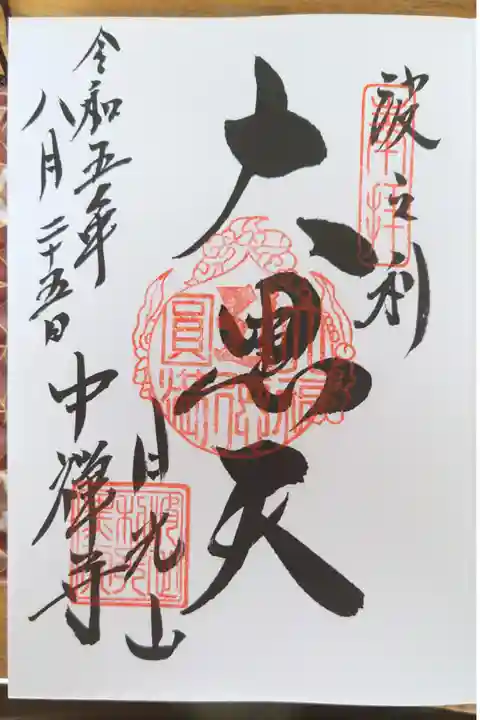 奉拝
波之利
大黒天
日光山
中禅寺
令和五年
八月二十五日